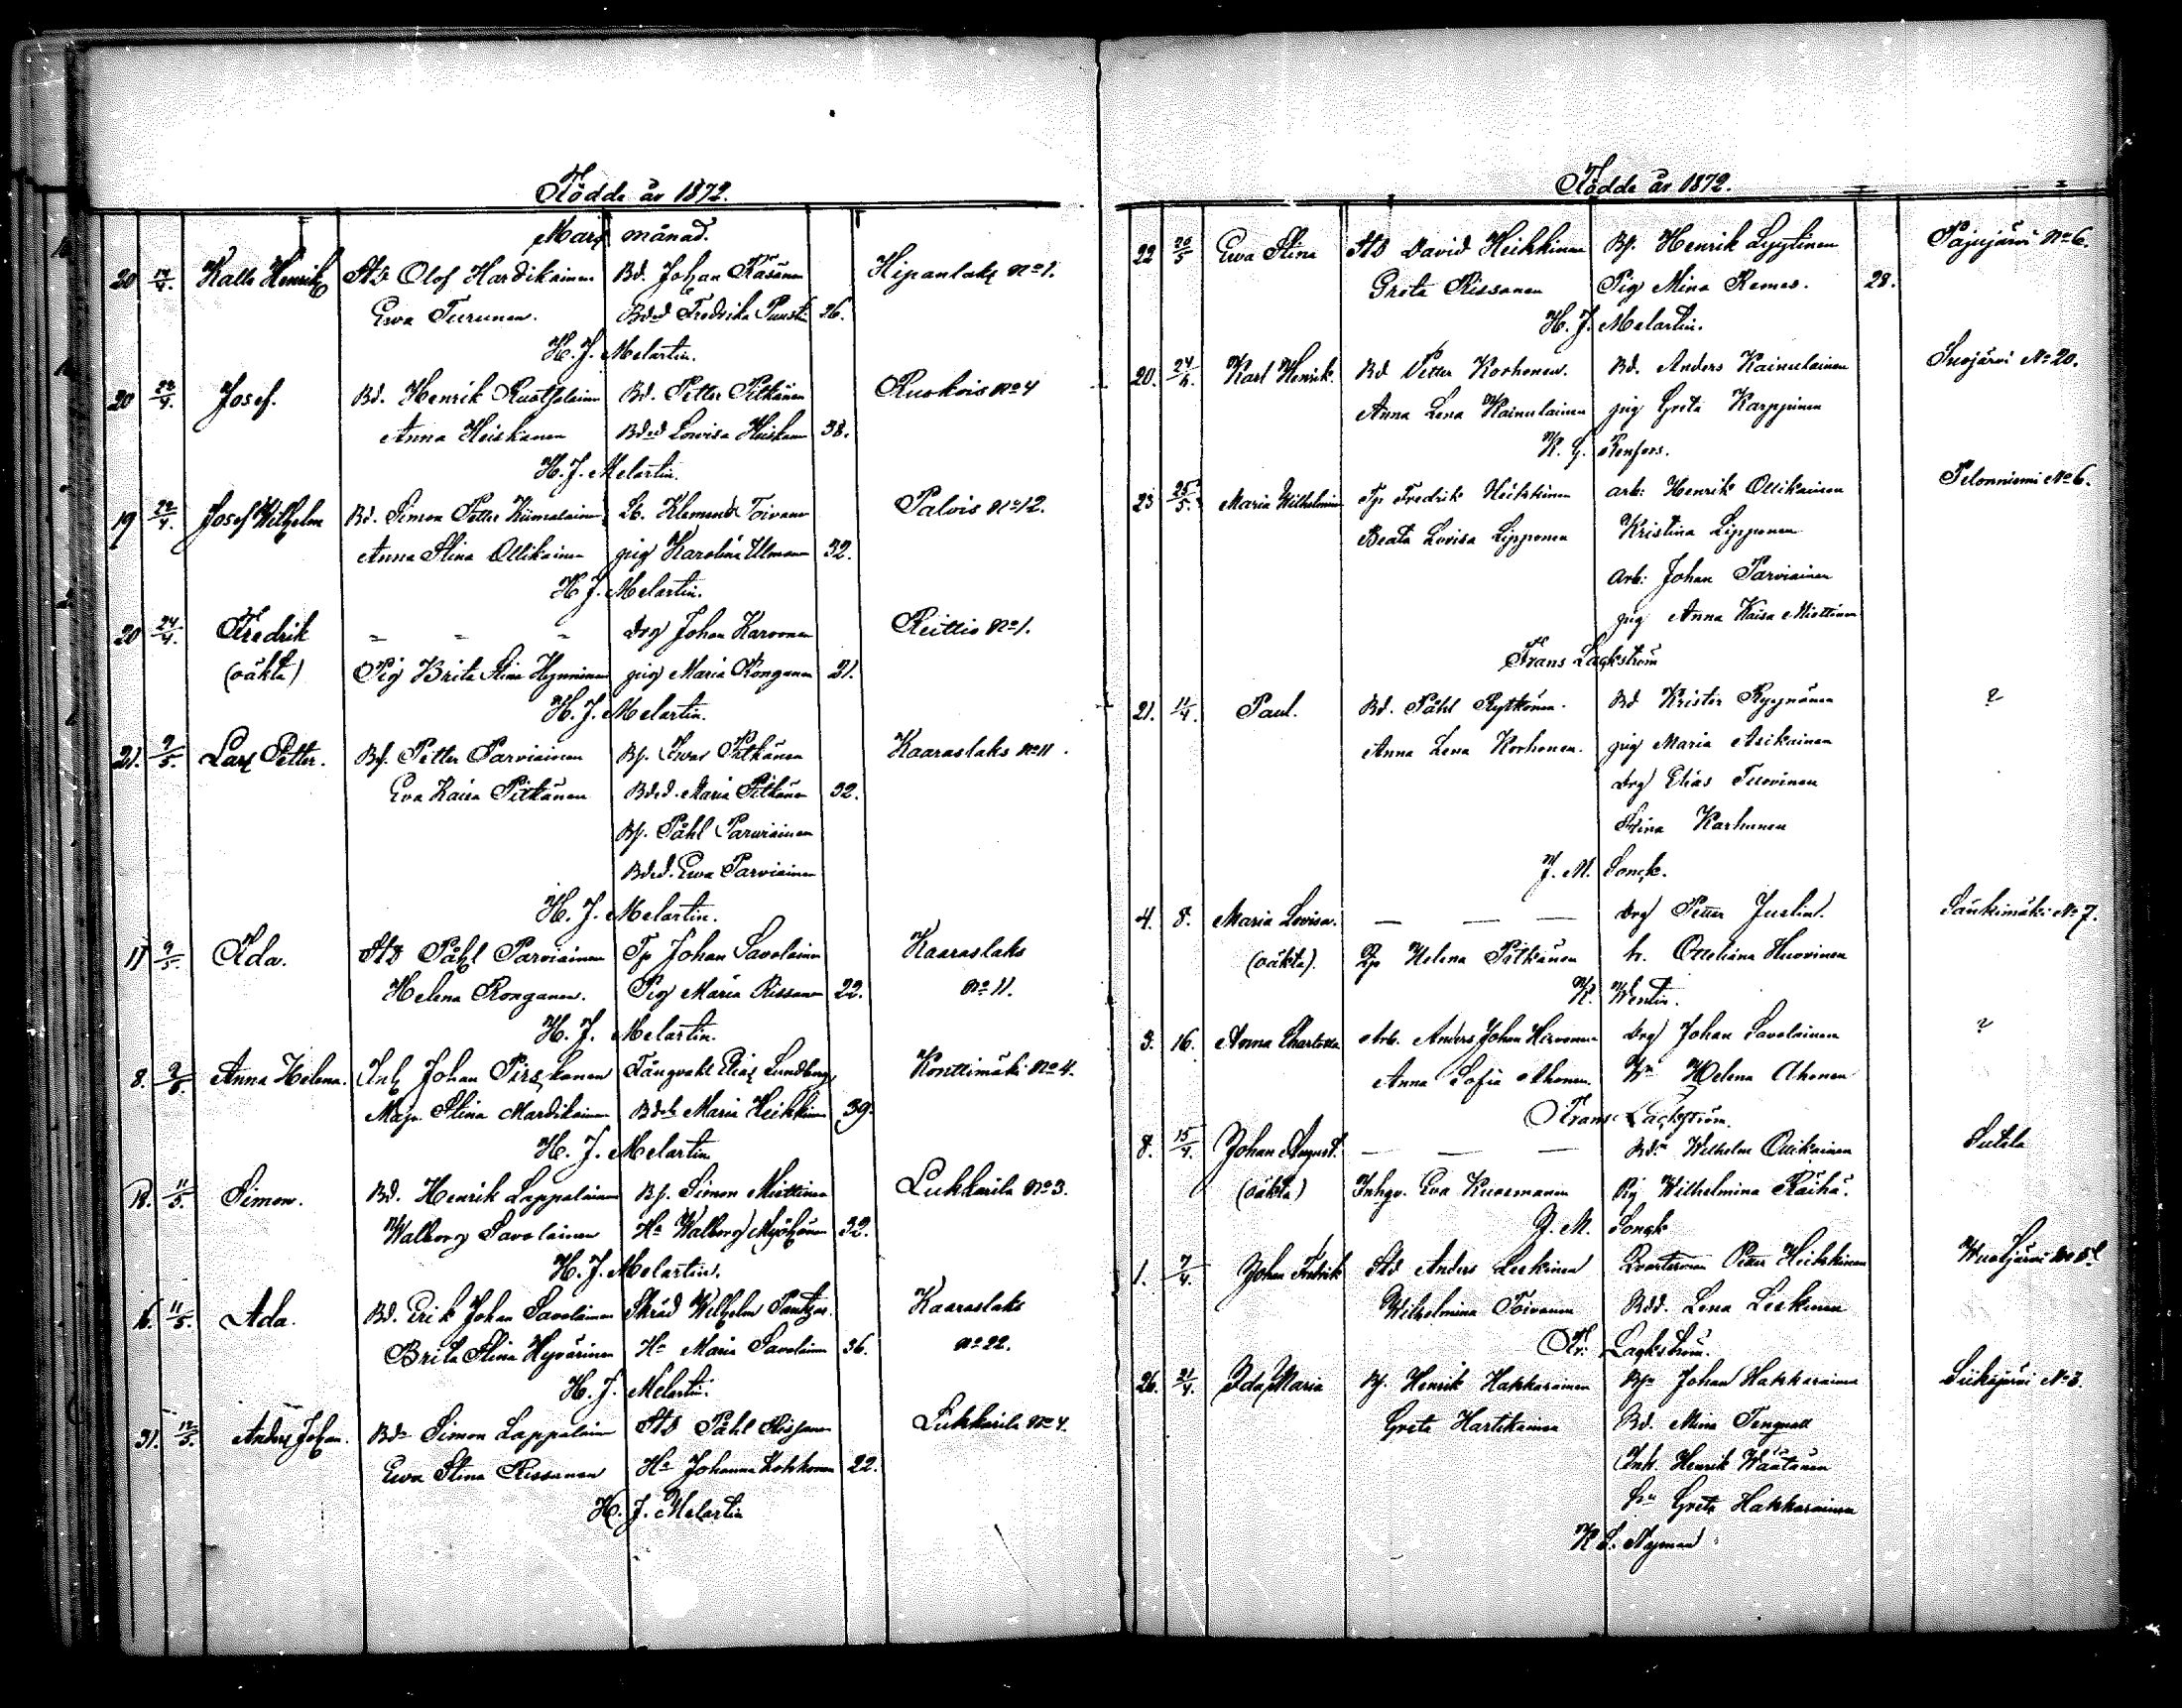 Födde år 1872.
Mars månad.
20 14/4. Kalle Henrik Stb Olof Hardikainen Bd. Johan Räsänen Hipanlaks No 1.
Ewa Turunen. Bded Fredrika Puust 36.
H. J. Melartin.
20 22/4. Josef. Bd. Henrik Bd. Petter Pitkänen Ruokois No 4
Anna Heiskanen Bded Lowisa Heiskan 38.
H. J. Melartin.
19 22/4. Josef Wilhelm Bd. Simon Petter Klemend Toivan Palois No 12.
Anna Stina Ollikainen pig Karolina Ulman 32.
H. J. Melartin.
20 24/4. Fredrik - - - drg Johan Karvonen Reittio No 1.
(oäkta) Pig Brita Stina Hynninen pig Maria Ronganen 21.
H. J. Melartin.
21. 9/5. Lars Petter. Bf. Petter Parviainen Bf. Iwar Pitkänen Kaaraslaks No 11.
Eva Kaisa Pitkänen Bded. Maria Pitkänen 32.
Bf. Påhl Parwiainen
Bded. Ewa Parviainen
H. J. Melartin.
11 9/5. Ida. Stb Påhl Parviainen Tp Johan Savolainen Kaaraslaks
Helena Ronganen. Pig Maria Rissanen 22. No 11.
H. J. Melartin.
8. 9/5. Anna Helena. Inh Johan Pirskanen Fångvakt Elias Lundberg Konttimäki No 4.
Maja Stina Mardikainen Bdeh Maria Heikkinen 39.
H. J. Melartin
18. 11/5. Simon. Bd. Henrik Lappalainen Bf. Simon Miettinen Lukkarila No 3.
Walborg Savolainen Hu Walborg Myöhänen 32.
H. J. Melartin.
16. 11/5. Ada. Bd. Erik Johan Savolainen Skräd Wilhelm Pantzar. Kaaraslaks
Brita Stina Hyvärinen Hu Maria Savolainen 36. No 22.
H. J. Melartin.
31. 12/5. Anders Johan. Bdn Simon Lappalain Stb Påhl Rissanen Lukkarila No 4.
Ewa Stina Rissanen Hu Johanna Kokkonen 22.
H. J. Melartin
Födde år 1872.
22 20/5 Ewa Stina Stb David Heikkinen Bf. Henrik Lyytinen Pajujärvi No 6.
Greta Rissanen Pig Mina Remes. 28.
H. J. Melartin.
20. 24/4. Karl Henrik. Bd Petter Korhonen. Bd. Anders Kainulainen Suojärvi No 20.
Anna Lena Kainulainen pig Greta Karppinen
K. G. Renfors.
23 25/5. Maria Wilhelmina Tp Fredrik Heikkinen arb: Henrik Ollikainen Pelonniemi No 6.
Beata Lovisa Lipponen Kristina Lipponen
Arb: Johan Parviainen
pig Anna Kaisa Miettinen
Frans Lackström
21. 11/4. Paul. Bd. Påhl Rytkönen. Bd Krister Ryynänen ?
Anna Lena Korhonen. pig Maria Asikainen
drg Elias Tuovinen
Stina Karhunen
J. M. Sonck.
4. 8. Maria Lovisa. — — — drg Petter Juslin. Sänkimäki No 7.
(oäkta). Helena Pitkänen h. Otteliana Huovinen
K. Wentin.
3. 16. Anna Charlotta Arb. Anders Johan Hirvonen drg Johan Savolainen ?
Anna Sofia Ahonen. Helena Ahonen
Frans Lackström.
8. 15/4. Johan August. — — — Bdn Wilhelm Ollikainen Sutela
(oäkta) Inhga. Eva Kuosmanen Pig Wilhelmina Räihä.
J. M. Sonck
1. 7/4. Johan Fredrik Stb Anders Leskinen Petter Heikkinen
Wilhelmina Toivanen Bdd. Lena Leskinen
Fr. Lackström.
26. 21/4. Ida Maria Bf. Henrik Hakkarainen Bfn Johan Hakkarainen Siikajärvi No 3.
Greta Hartikainen Bd. Mina Tengvall
Inh. Henrik Väätänen
hu Greta Hakkarainen
K S. Nyman